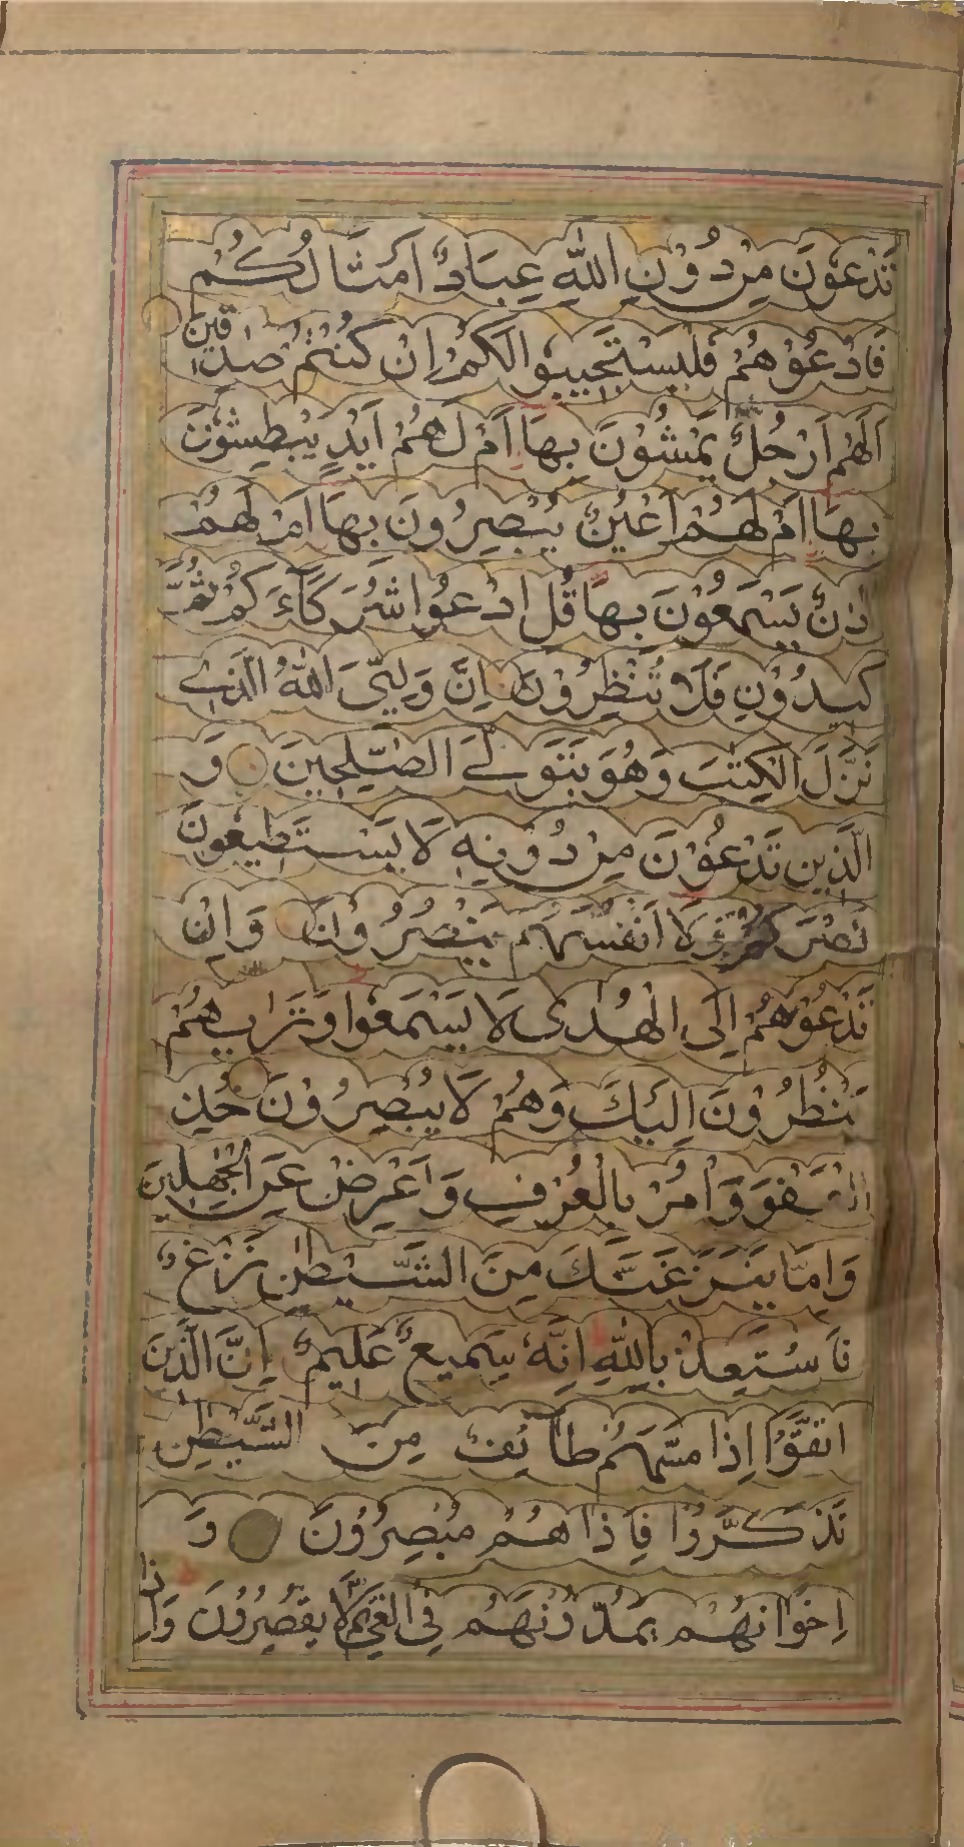 تَدْعُوْنَ مِنْ دُوْنِ اللّٰهِ عِبَادٌ اَمْثَالُكُمْ
فَادْعُوْهُمْ فَلْيَسْتَجِيْبُوا لَكُمْ اِنْ كُنْتُمْ صٰدِقِيْنَ
اَلَهُمْ اَرْجُلٌ يَمْشُوْنَ بِهَا اَمْ لَهُمْ اَيْدٍ يَبْطِشُوْنَ
بِهَا اَمْ لَهُمْ اَعْيُنٌ يُبْصِرُوْنَ بِهَا اَمْ لَهُمْ
اٰذَانٌ يَسْمَعُوْنَ بِهَا قُلِ ادْعُوْا شُرَكَآءَكُمْ ثُمَّ
كِيْدُوْنِ فَلَا تُنْظِرُوْنِ اِنَّ وَلِيِّيَ اللّٰهُ الَّذِيْ
نَزَّلَ الْكِتٰبَ وَهُوَ يَتَوَلَّى الصّٰلِحِيْنَ وَ
الَّذِيْنَ تَدْعُوْنَ مِنْ دُوْنِهٖ لَا يَسْتَطِيْعُوْنَ
نَصْرَكُمْ وَلَا اَنْفُسَهُمْ يَنْصُرُوْنَ وَاِنْ
تَدْعُوْهُمْ اِلَى الْهُدٰى لَا يَسْمَعُوْا وَتَرٰىهُمْ
يَنْظُرُوْنَ اِلَيْكَ وَهُمْ لَا يُبْصِرُوْنَ خُذِ
الْعَفْوَ وَاْمُرْ بِالْعُرْفِ وَاَعْرِضْ عَنِ الْجٰهِلِيْنَ
وَاِمَّا يَنْزَغَنَّكَ مِنَ الشَّيْطٰنِ نَزْغٌ
فَاسْتَعِذْ بِاللّٰهِ اِنَّهٗ سَمِيْعٌ عَلِيْمٌ اِنَّ الَّذِيْنَ
اتَّقَوْا اِذَا مَسَّهُمْ طَآئِفٌ مِنَ الشَّيْطٰنِ
تَذَكَّرُوْا فَاِذَا هُمْ مُبْصِرُوْنَ وَ
اِخْوَانُهُمْ يَمُدُّوْنَهُمْ فِي الْغَيِّ ثُمَّ لَا يُقْصِرُوْنَ وَاِذَا